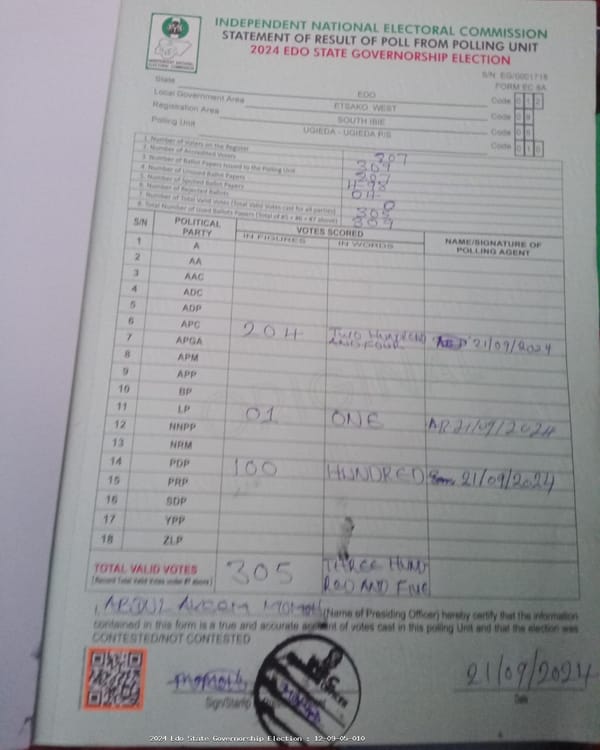 INDEPENDENT NATIONAL ELECTORAL COMMISSION
STATEMENT OF RESULT OF POLL FROM POLLING UNIT
2024 EDO STATE GOVERNORSHIP ELECTION
S/N EG/0001718
FORM EC 8A
State EDO Code 0 1 2
Local Government Area ETSAKO WEST Code 0 9
Registration Area SOUTH IBIE Code 0 5
Polling Unit UGIEDA - UGIEDA P/S Code 0 1 0
1. Number of Voters on the Register 307
2. Number of Accredited Voters 309
3. Number of Ballot Papers Issued to the Polling Unit
4. Number of Unused Ballot Papers 498
5. Number of Spoiled Ballot Papers 04
6. Number of Rejected Ballots 0
7. Number of Total Valid Votes (Total Valid Votes cast for all parties) 305
8. Total Number of Used Ballots Papers (Total of #5 + #6 + #7 above) 309
S/N POLITICAL PARTY VOTES SCORED NAME/SIGNATURE OF POLLING AGENT
IN FIGURES IN WORDS
1 A
2 AA
3 AAC
4 ADC
5 ADP
6 APC 204 TWO HUNDRED AND FOUR 21/09/2024
7 APGA
8 APM
9 APP
10 BP
11 LP 01 ONE 21/09/2024
12 NNPP
13 NRM
14 PDP 100 HUNDRED 21/09/2024
15 PRP
16 SDP
17 YPP
18 ZLP
TOTAL VALID VOTES 305 THREE HUND
[Record Total Valid Votes under #7 above] RED AND FIVE
I, ABDUL AKEEM MOMOH (Name of Presiding Officer) hereby certify that the information
contained in this form is a true and accurate account of votes cast in this polling Unit and that the election was
CONTESTED/NOT CONTESTED
momoh 21/09/2024
Sign/Stamp Date
2024 Edo State Governorship Election : 12-09-05-010